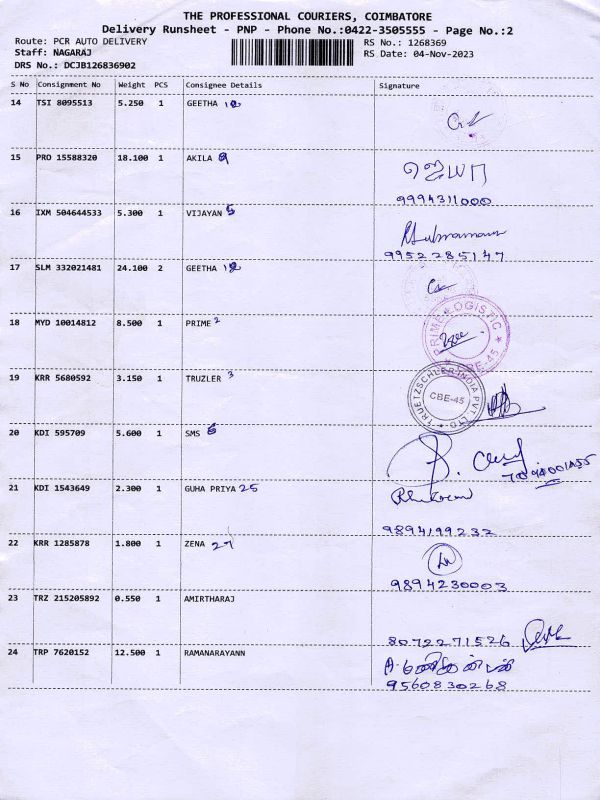 THE PROFESSIONAL COURIERS, COIMBATORE
Delivery Runsheet - PNP - Phone No.:0422-3505555 - Page No.:2
Route: PCR AUTO DELIVERY RS No.: 1268369
Staff: NAGARAJ RS Date: 04-Nov-2023
DRS No.: DCJB126836902
S No Consignment No Weight PCS Consignee Details Signature
14 TSI 8095513 5.250 1 GEETHA
15 PRO 15588320 18.100 1 AKILA 9
ஜெயா
9994311000
16 IXM 504644533 5.300 1 VIJAYAN 5
9952285147
17 SLM 332021481 24.100 2 GEETHA
18 MYD 10014812 8.500 1 PRIME 2
PRIME LOGISTIC
CBE-45
19 KRR 5680592 3.150 1 TRUZLER 3
TRUETZSCHLER INDIA PVT LTD
CBE-45
20 KDI 595709 5.600 1 SMS 6
21 KDI 1543649 2.300 1 GUHA PRIYA 25
9894199232
22 KRR 1285878 1.800 1 ZENA 27
9894230003
23 TRZ 215205892 0.550 1 AMIRTHARAJ
8072271526
24 TRP 7620152 12.500 1 RAMANARAYANN
9560830268